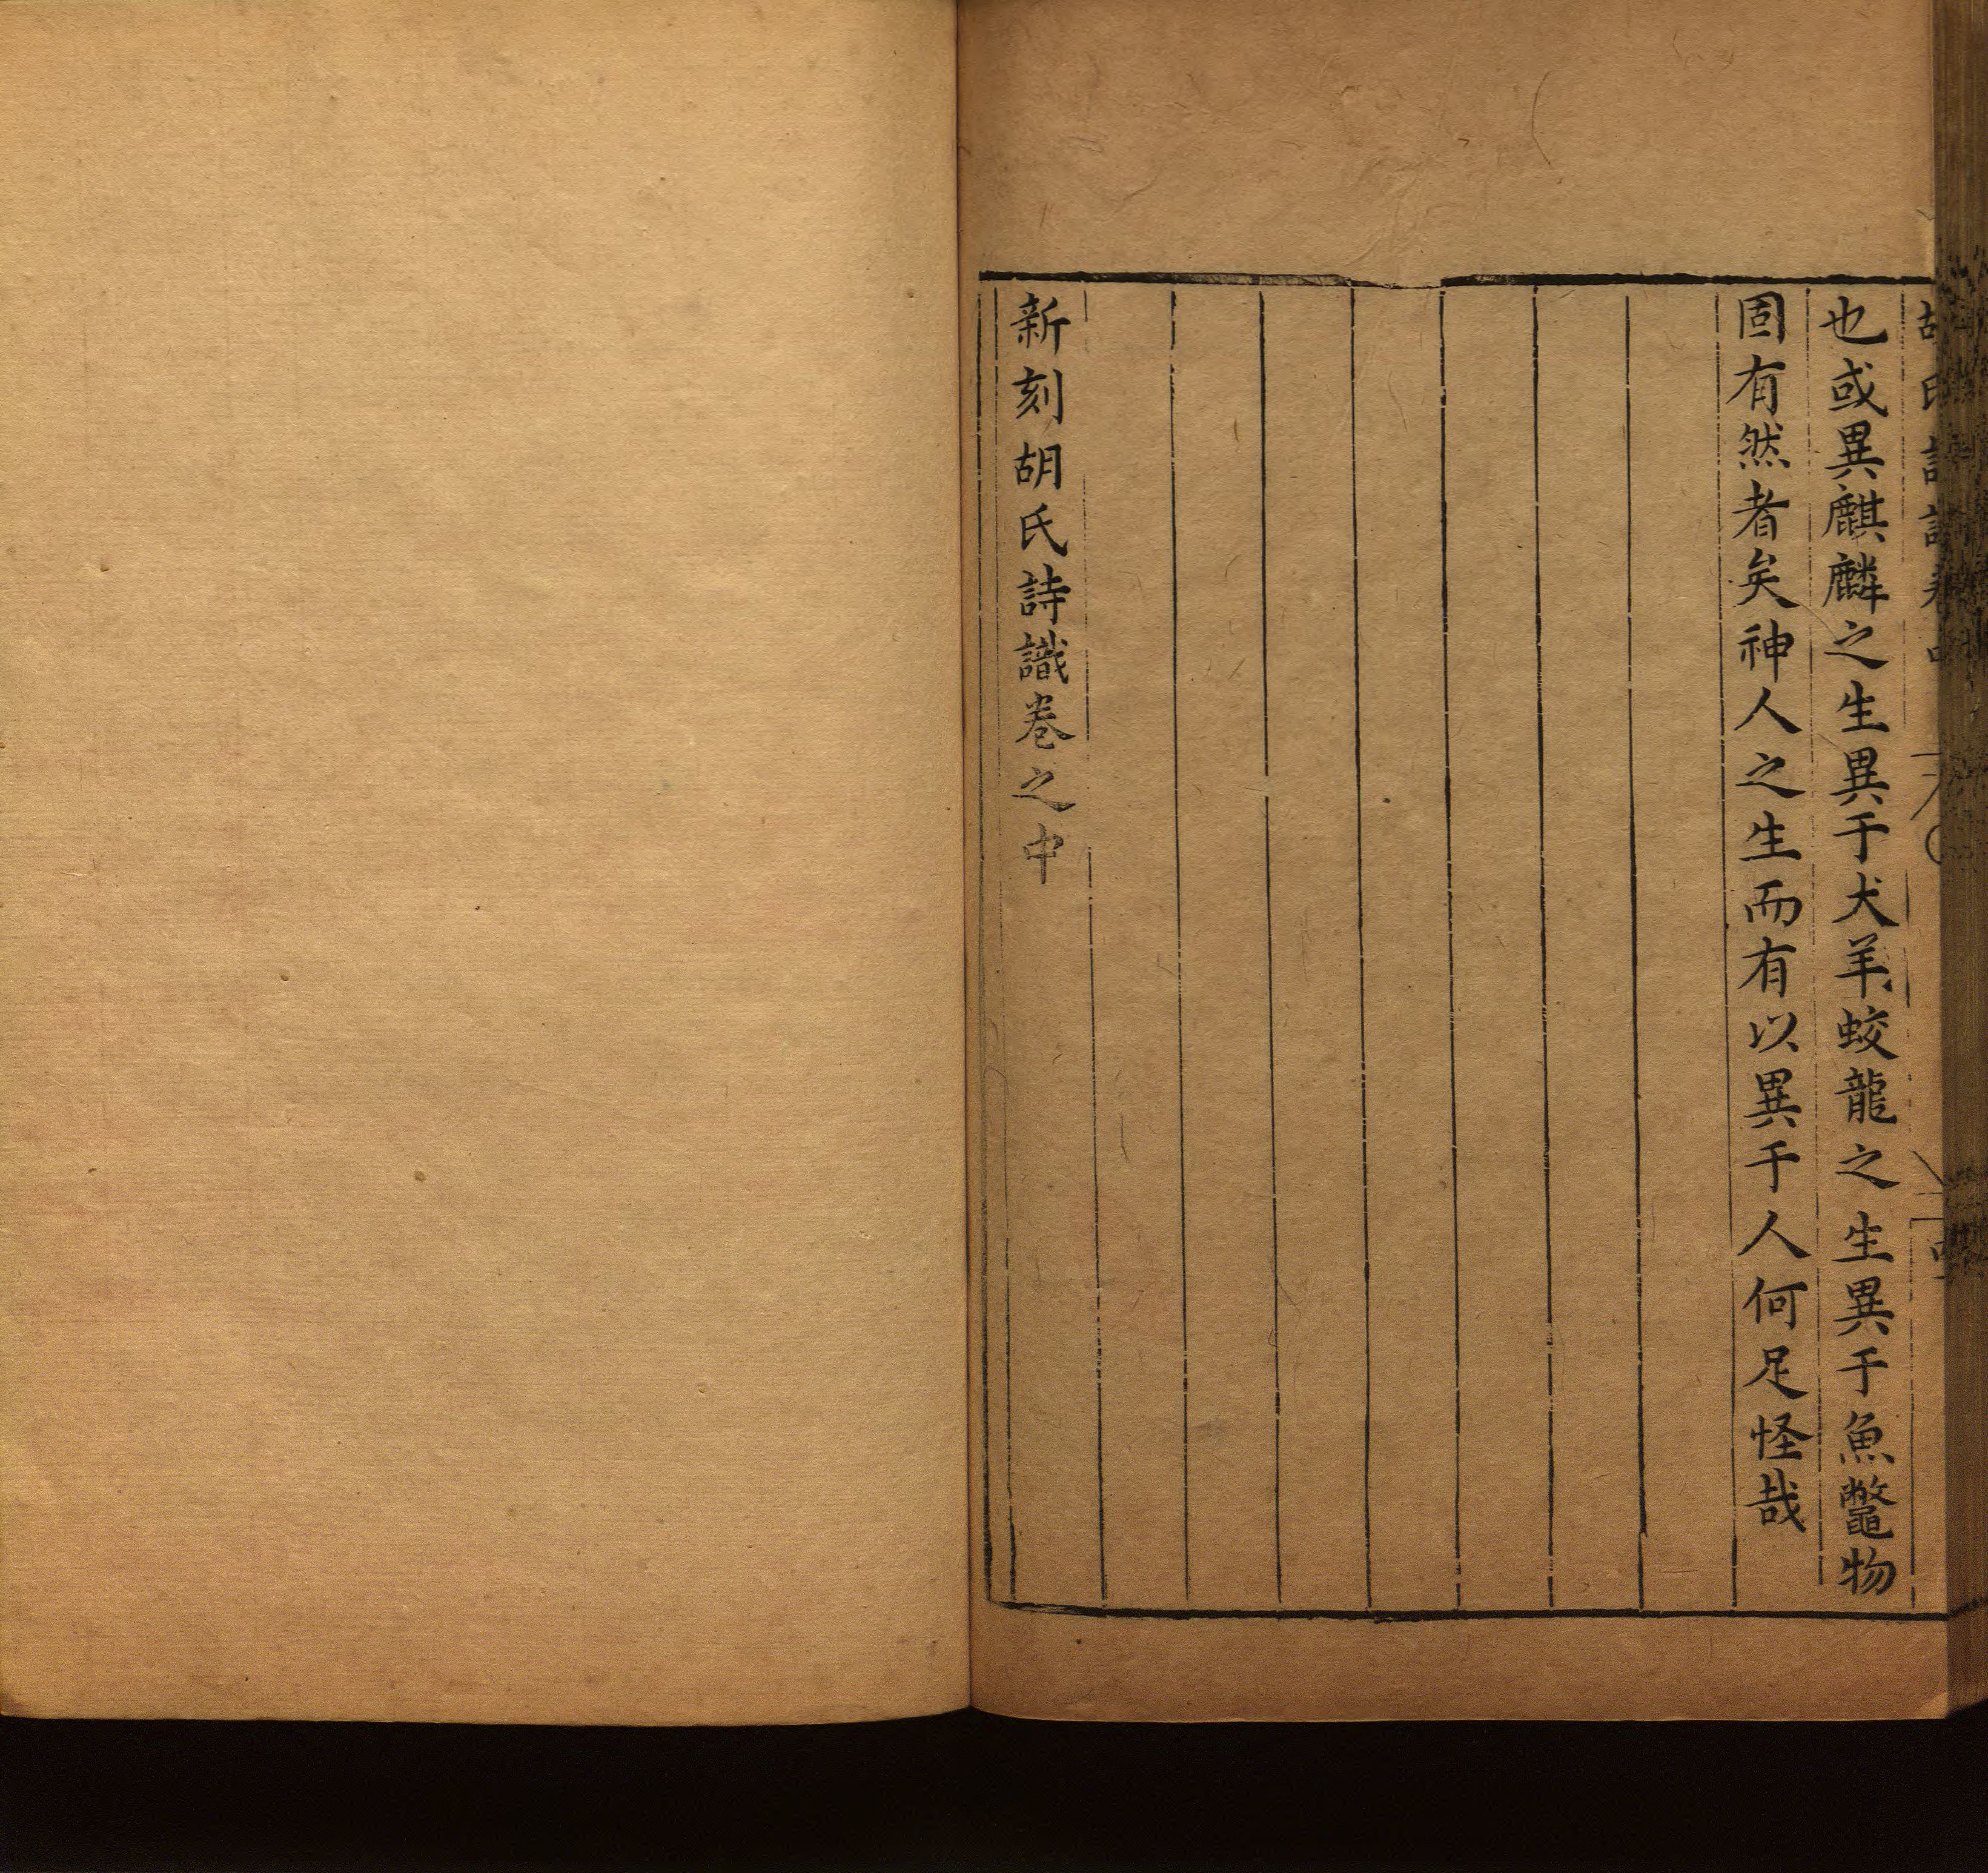 也或異麒麟之生異于犬羊蛟龍之生異于魚鼈物
固有然者矣神人之生而有以異于人何足怪哉
新刻胡氏詩識卷之中